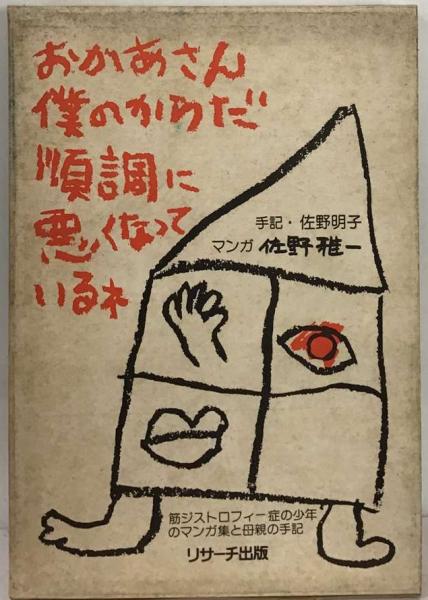 おかあさん
僕のからだ
順調に
悪くなって
いるね
手記・佐野明子
マンガ 佐野雅一
筋ジストロフィー症の少年
のマンガ集と母親の手記
リサーチ出版